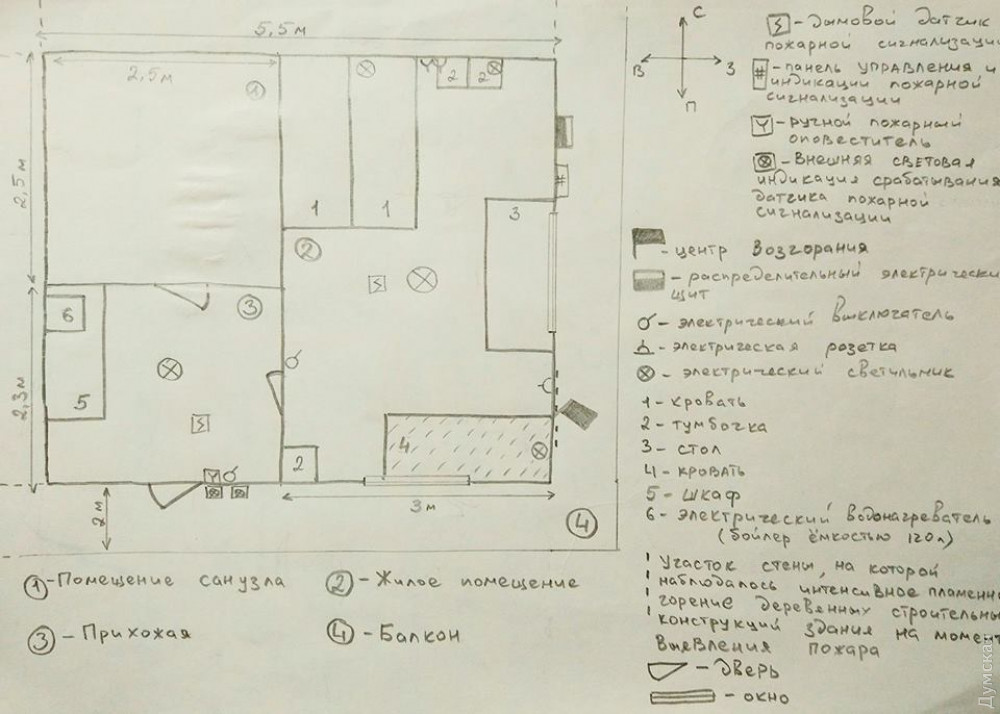 5,5 м
2,5м
1
2
2
С
В
З
П
2,5 м
1
1
3
2
3
6
5
2,3м
4
2
2м
3м
4
#
- дымовой датчик
пожарной сигнализаци
# - панель управления и
индикации пожарной
сигнализации
- ручной пожарный
оповеститель
- Внешняя световая
индикация срабатывания
датчика пожарной
сигнализации
- центр возгорания
- распределительный электрически
щит
- электрический выключатель
- электрическая розетка
- электрический светильник
1 - кровать
2 - тумбочка
3 - стол
4 - кровать
5 - шкаф
6 - электрический водонагреватель
(бойлер ёмкостью 120л)
Участок стены, на которой
наблюдалось интенсивное пламенно
горение деревянных строительны
конструкций здания на момент
выевления пожара
- дверь
- окно
1 - Помещение санузла
2 - Жилое помещение
3 - Прихожая
4 - Балкон
Думская